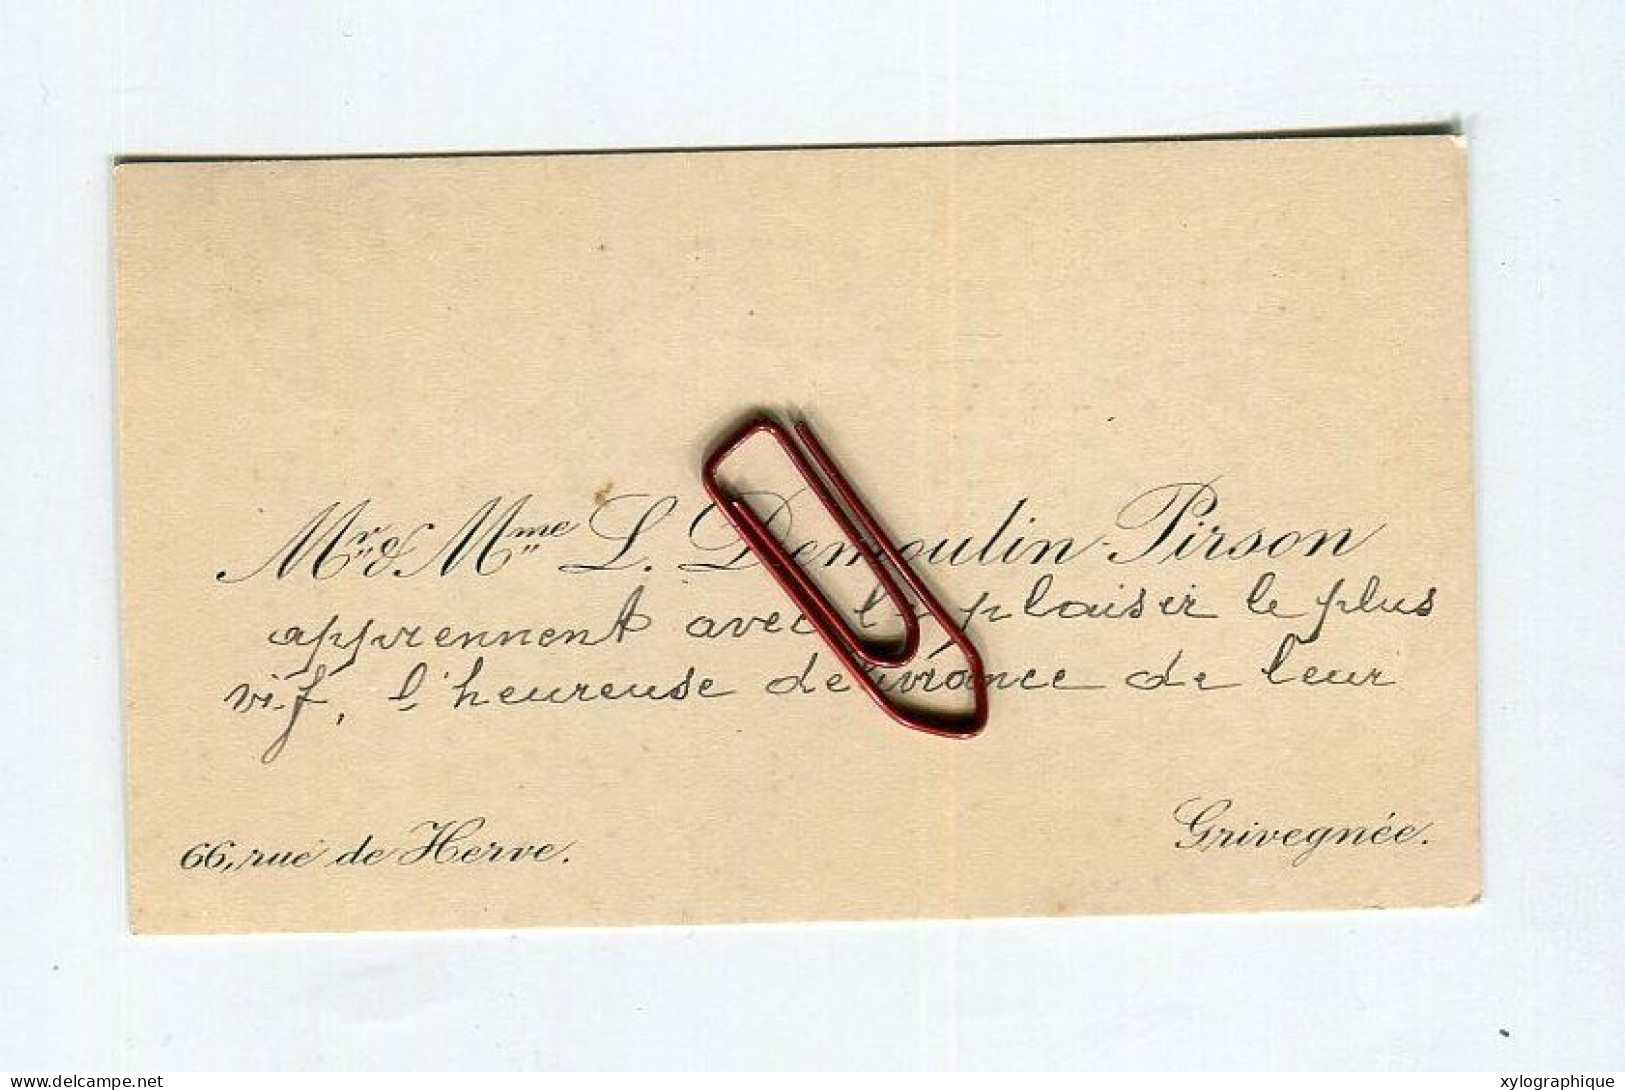 Mr & Mme L. Demoulin-Pirson
apprennent avec le plaisir le plus
vif, l'heureuse delivrance de leur
66, rue de Herve.
Grivegnée.
www.delcampe.net
xylographique